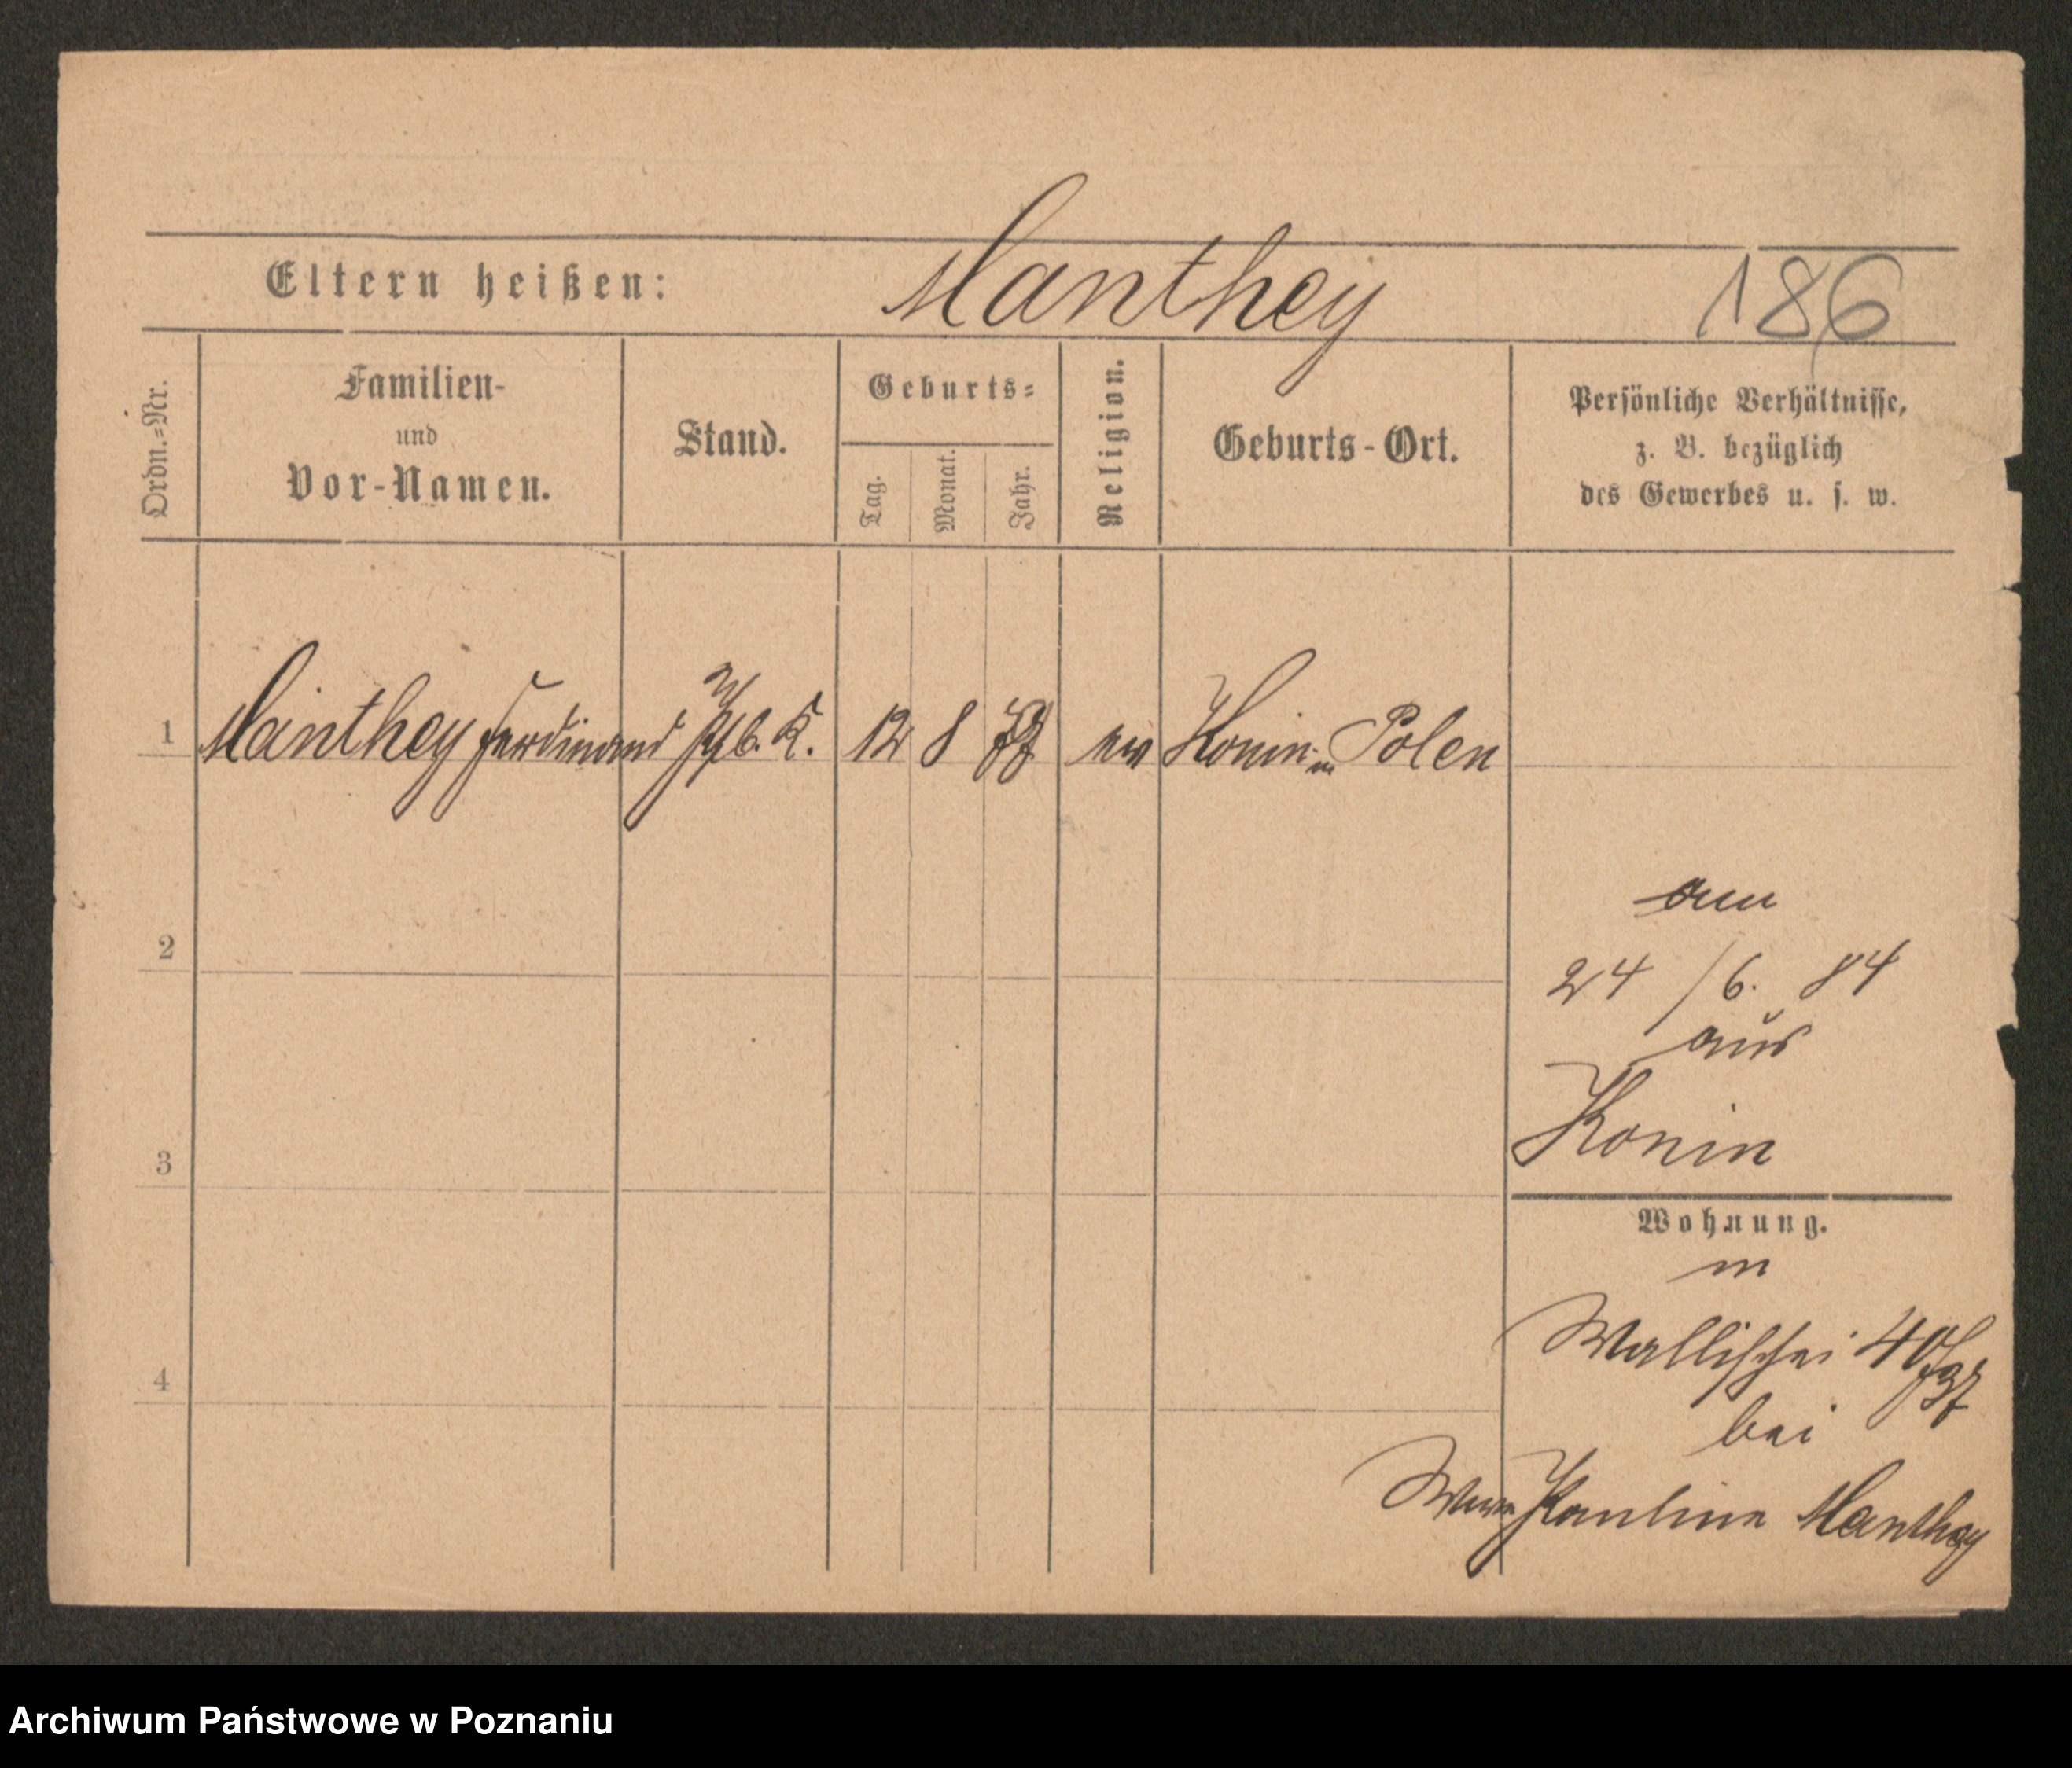 Eltern heißen: Manthey 186
Ordn.=Nr.
Familien-
und
Vor-Namen.
Stand.
Geburts=
Tag.
Monat.
Jahr.
Religion.
Geburts-Ort.
Persönliche Verhältnisse,
z. B. bezüglich
des Gewerbes u. s. w.
1 Manthey Ferdinand 12 8 ev Konin in Polen
2
3
4
am
24/6. 84
aus
Konin
Wohnung.
in
Wallischei 40
bei
Pauline Manthey
Archiwum Państwowe w Poznaniu